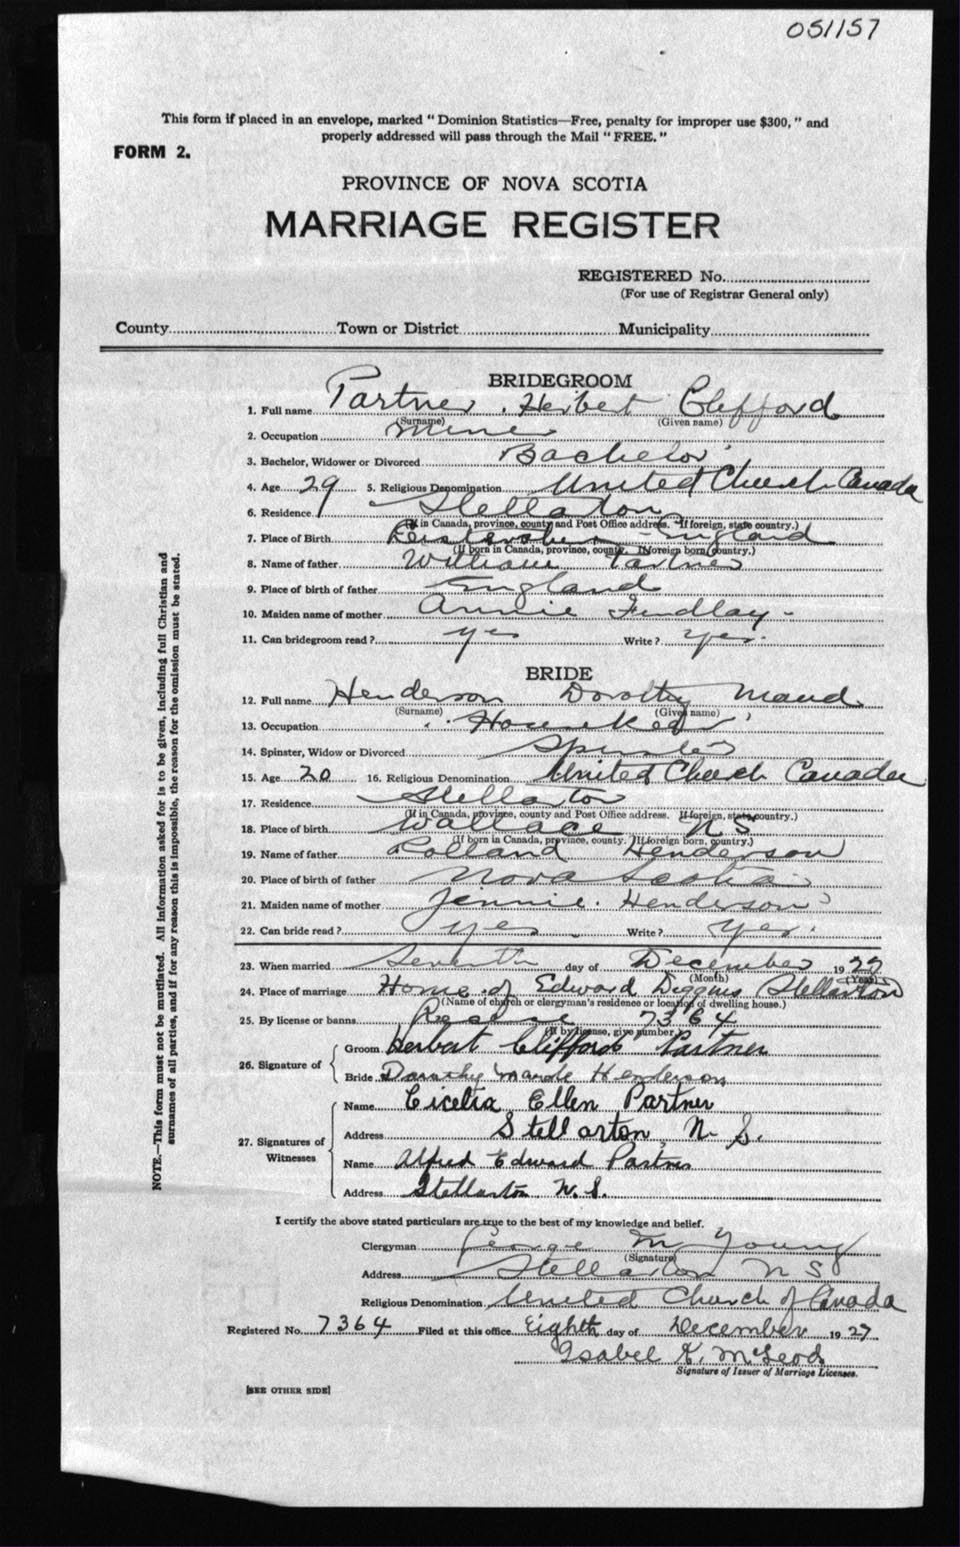 051157
This form if placed in an envelope, marked "Dominion Statistics—Free, penalty for improper use $300," and
properly addressed will pass through the Mail "FREE."
FORM 2.
PROVINCE OF NOVA SCOTIA
MARRIAGE REGISTER
REGISTERED No.
(For use of Registrar General only)
County Town or District Municipality
BRIDEGROOM
1. Full name Partner, Herbert Clifford
(Surname) (Given name)
2. Occupation Miner
3. Bachelor, Widower or Divorced Bachelor
4. Age 29 5. Religious Denomination United Church Canada
6. Residence Stellarton
(If in Canada, province, county and Post Office address. If foreign, state country.)
7. Place of Birth England
(If born in Canada, province, county. If foreign born, country.)
8. Name of father William Partner
9. Place of birth of father England
10. Maiden name of mother Annie Findlay
11. Can bridegroom read? yes Write? yes.
BRIDE
12. Full name Henderson Dorothy Maud
(Surname) (Given name)
13. Occupation
14. Spinster, Widow or Divorced Spinster
15. Age 20 16. Religious Denomination United Church Canada
17. Residence Stellarton
(If in Canada, province, county and Post Office address. If foreign, state country.)
18. Place of birth Wallace N S
(If born in Canada, province, county. If foreign born, country.)
19. Name of father Rolland Henderson
20. Place of birth of father Nova Scotia
21. Maiden name of mother Jennie Henderson
22. Can bride read? yes Write? yes.
23. When married Seventh day of December 1927
(Month) (Year)
24. Place of marriage Home of Edward Diggins Stellarton
(Name of church or clergyman's residence or location of dwelling house.)
25. By license or banns 7364
(If by license, give number)
26. Signature of Groom Herbert Clifford Partner
Bride Dorothy Maude Henderson
27. Signatures of Witnesses Name Cicelia Ellen Partner
Address Stellarton, N. S.
Name Alfred Edward Partner
Address Stellarton N. S.
I certify the above stated particulars are true to the best of my knowledge and belief.
Clergyman George M Young
(Signature)
Address Stellarton N S
Religious Denomination United Church of Canada
Registered No. 7364 Filed at this office Eighth day of December 1927
Isabel K. McLeod
Signature of Issuer of Marriage Licenses.
[SEE OTHER SIDE]
NOTE.—This form must not be mutilated. All information asked for is to be given, including full Christian and
surnames of all parties, and if for any reason this is impossible, the reason for the omission must be stated.